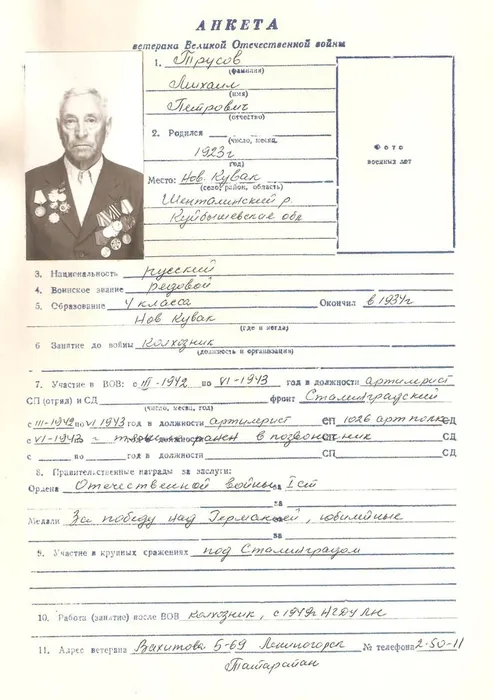 АНКЕТА
ветерана Великой Отечественной войны
1. Трусов
(фамилия)
Михаил
(имя)
Петрович
(отчество)
2. Родился
(число, месяц,
1923г
год)
Место: Нов. Кувак
(село, район, область)
Шенталинский р.
Куйбышевская обл
Фото
военных лет
3. Национальность русский
4. Воинское звание рядовой
5. Образование 4 класса Окончил в 1934г
Нов Кувак
(где и когда)
6 Занятие до войны колхозник
(должность и организация)
7. Участие в ВОВ: с III-1942 по VI-1943 год в должности артилерист
СП (отряд) и СД фронт Сталинградский
(число, месяц, год)
с III-1942 по VI 1943 год в должности артилерист СП 1026 арт полк СД
с VI-1943 г тяжело ранен в позвоночник СД
с по год в должности СП СД
8. Правительственные награды за заслуги:
Ордена Отечественной войны за I ст
за
Медали За победу над Германией, юбилейные
за
9. Участие в крупных сражениях под Сталинградом
10. Работа (занятие) после ВОВ колхозник, с 1949г НГДУ ЛН
11. Адрес ветерана Вахитова 5-69 Лениногорск № телефона 2-50-11